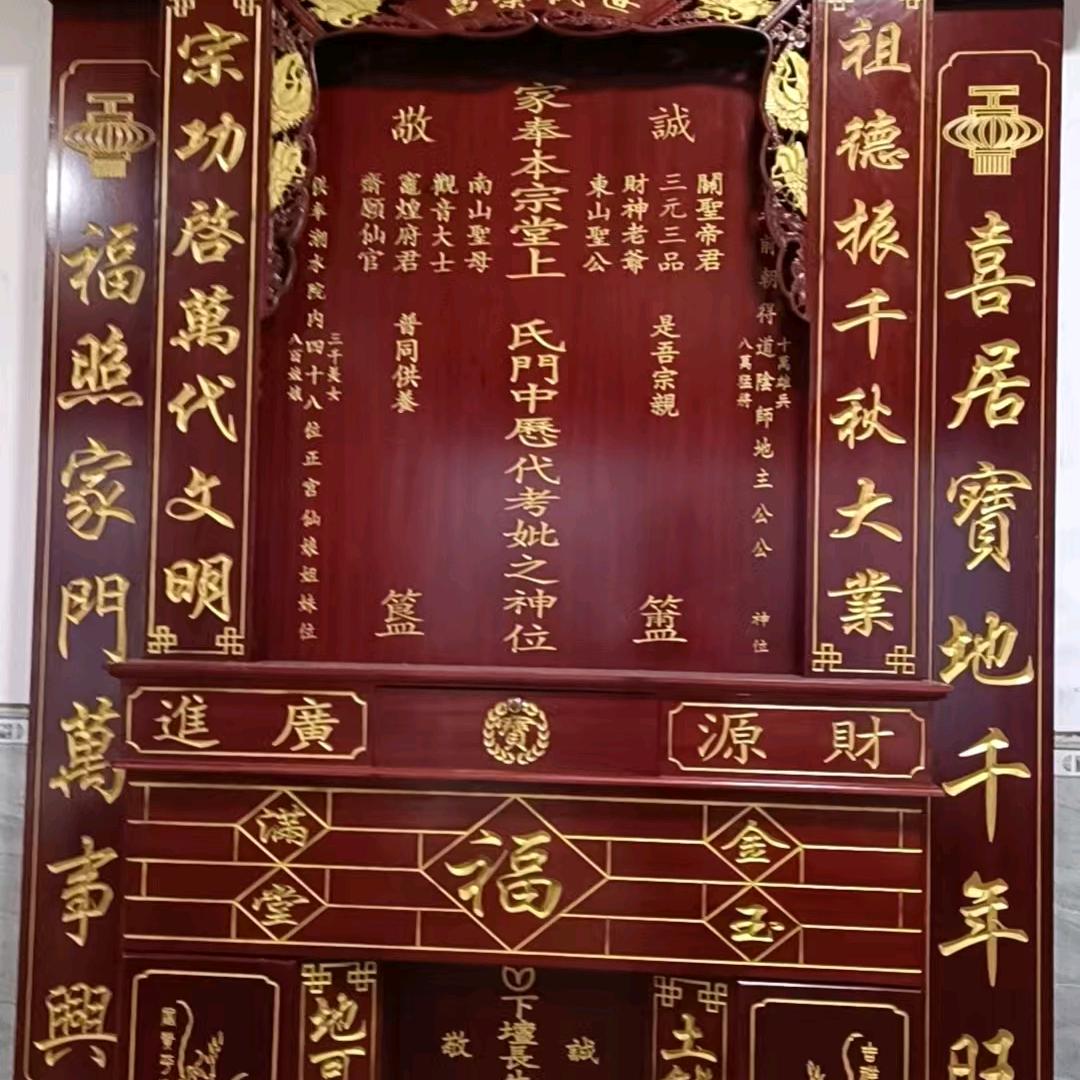 喜居寶地千年旺
福照家門萬事興
祖德振千秋大業
宗功啓萬代文明
誠
敬
關聖帝君
三元三品
財神老爺
東山聖公
家奉本宗堂上
氏門中歷代考妣之神位
南山聖母
觀音大士
竈煌府君
齋願仙官
是吾宗親
普同供養
前朝得道陰師地主公公
神位
十萬雄兵
八萬猛將
奉潮水院内四十八位正宮仙娘姐妹位
三千美女
八百嬌娥
簠
財源
寶
廣進
金玉
滿堂
福
土
地可
下壇長生
誠
敬
吉